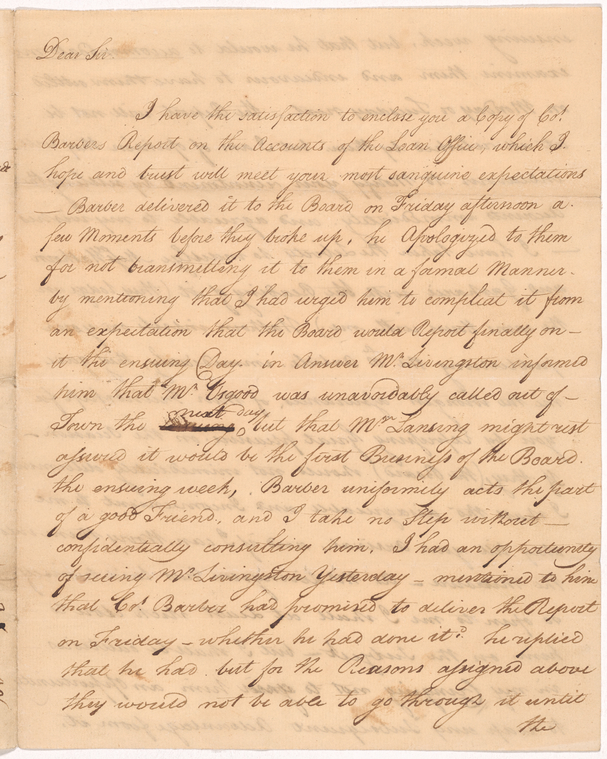 Dear Sir.
I have the satisfaction to enclose you a Copy of Col.
Barbers Report on the Accounts of the Loan Office, which I
hope and trust will meet your most sanguine expectations
— Barber delivered it to the Board on Friday afternoon a
few Moments before they broke up, he Apologized to them
for not transmitting it to them in a formal Manner.
by mentioning that I had urged him to compleat it from
an expectation that the Board would Report finally on —
it the ensuing Day. in Answer Mr. Livingston informed
him that Mr. Osgood was unavoidably called out of —
next day
Town the but that Mrs. Lansing might rest
assured it would be the first Business of the Board.
the ensuing week, . Barber uniformily acts the part
of a good Friend, and I take no Step without —
confidentially consulting him. I had an opportunity
of seeing Mr. Livingston Yesterday = mentioned to him
that Col. Barber had promised to deliver the Report
on Friday — whether he had done it? he replied
that he had. but for the Reasons assigned above
they would not be able to go through it until
the